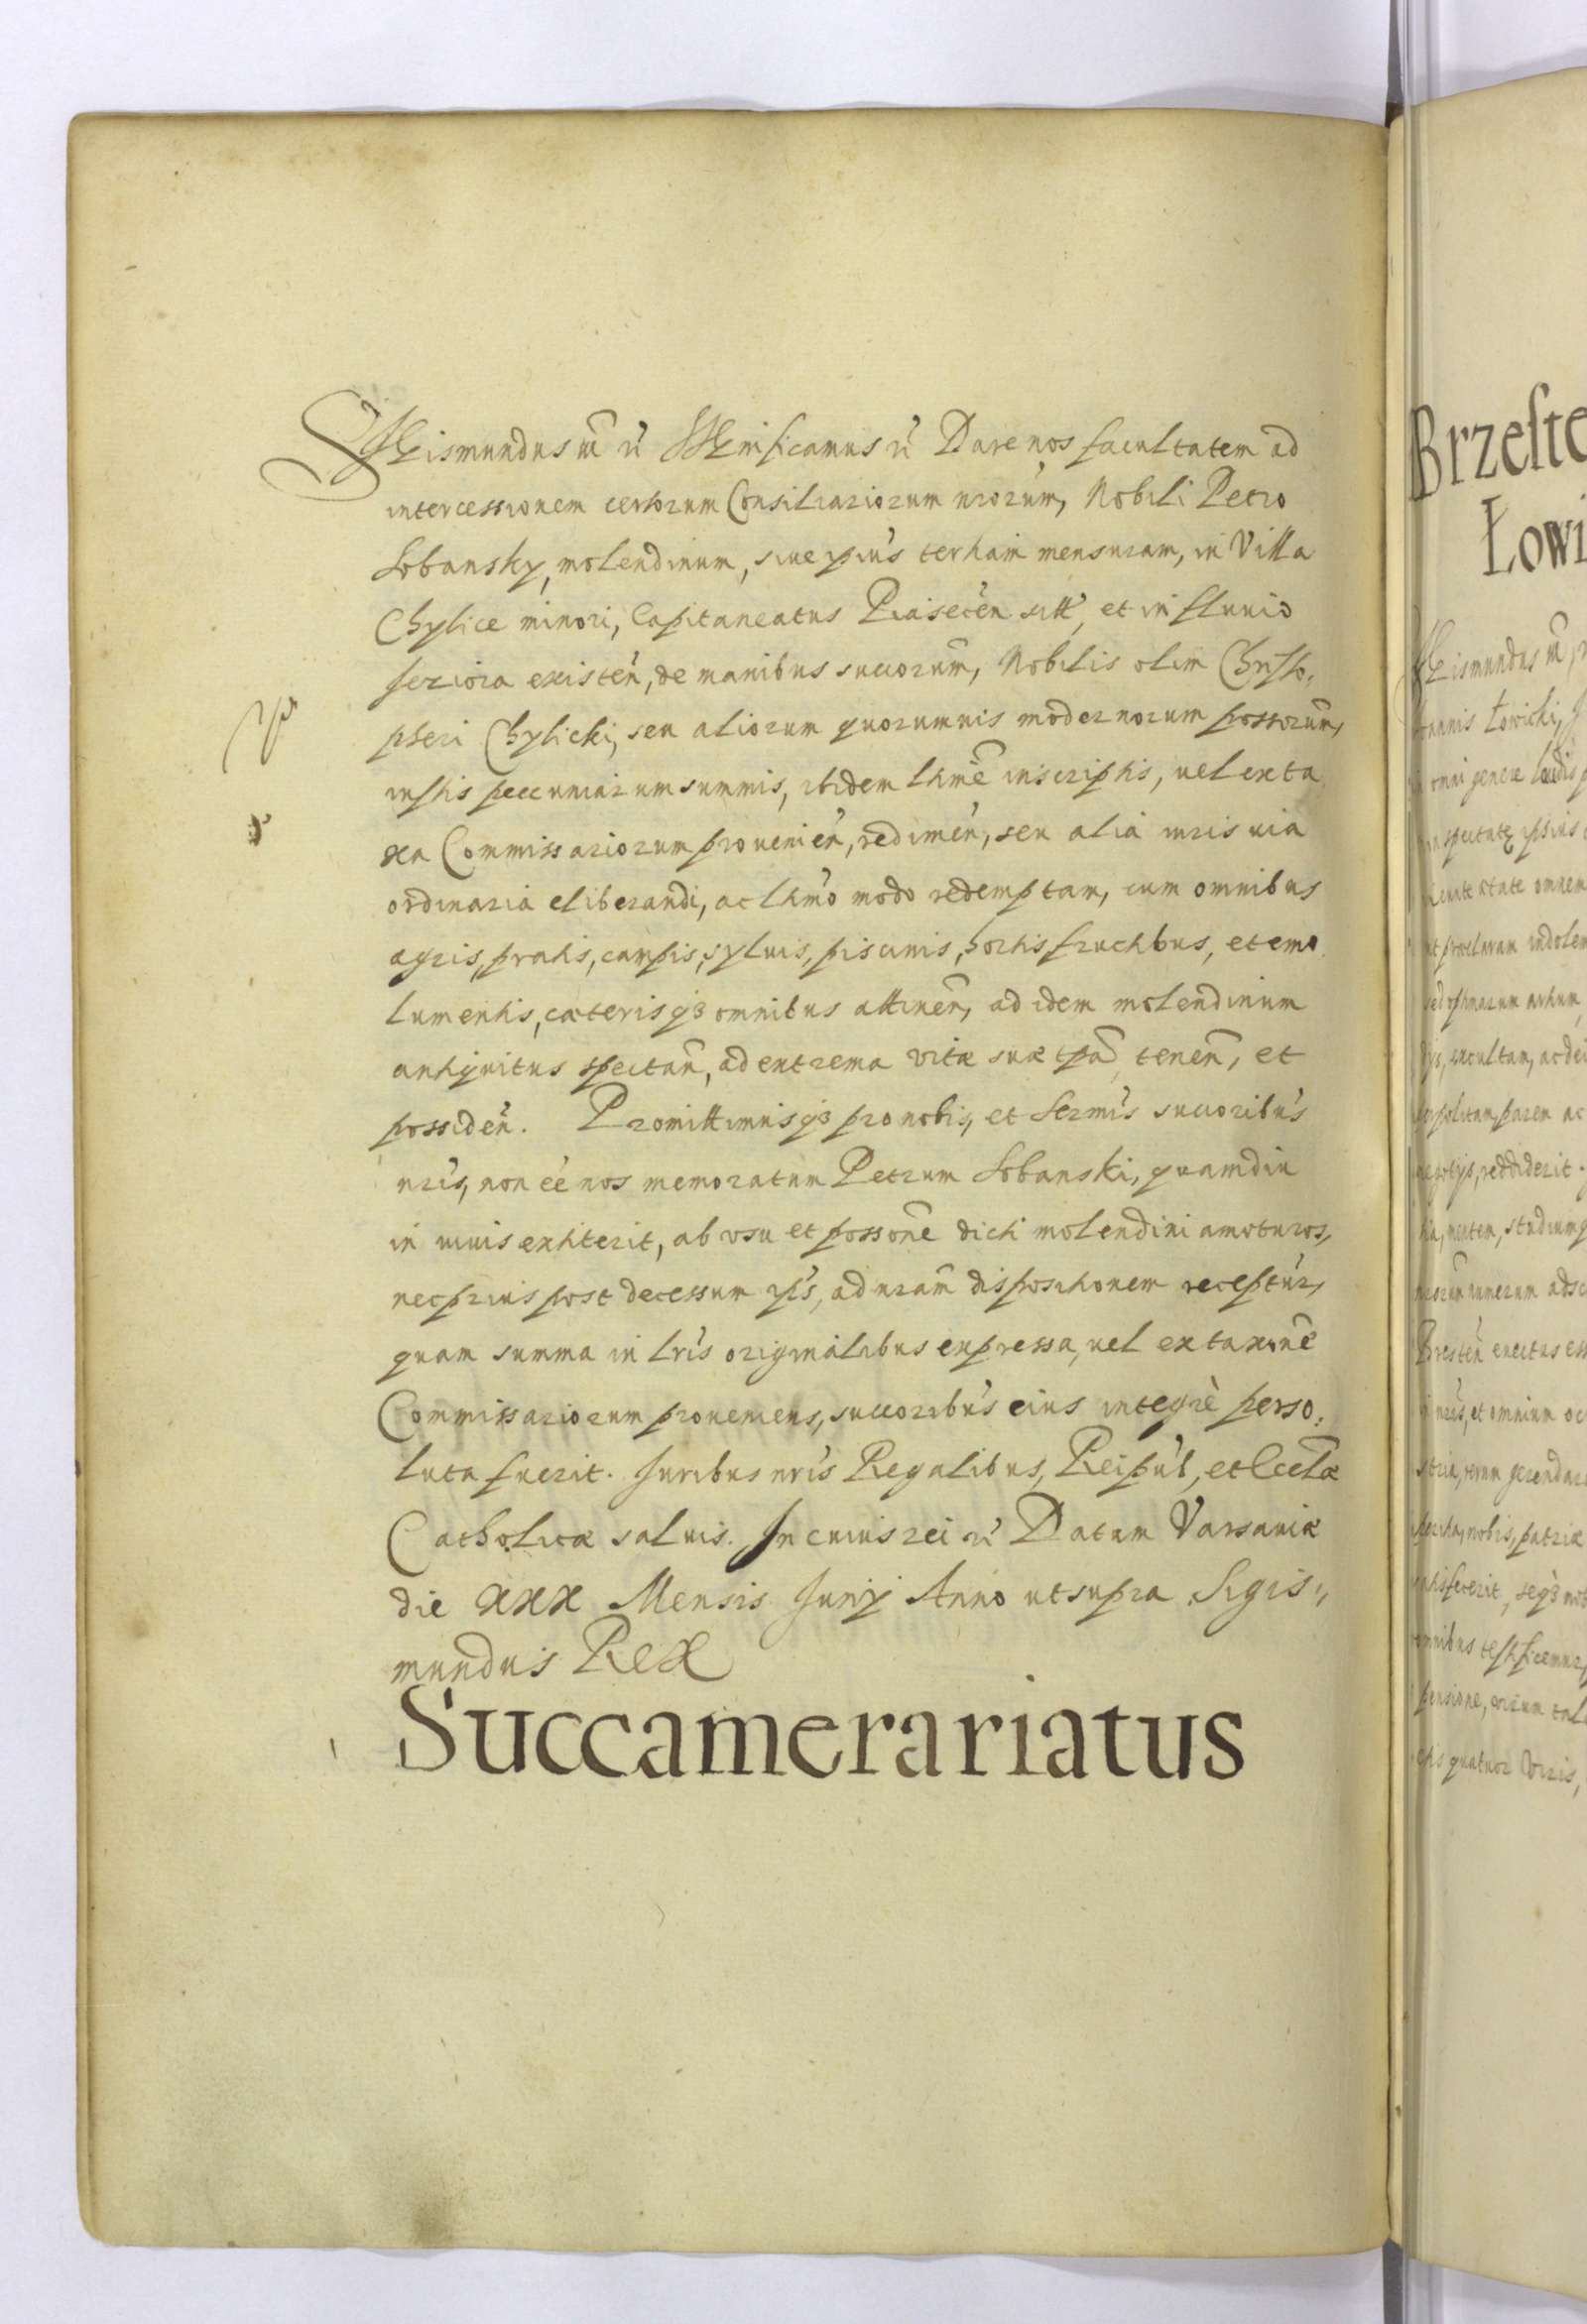 Sigismundus III etc. Significamus etc. Dare nos facultatem ad
intercessionem certorum Consiliariorum nrorum, Nobili Petro
Lobansky, molendinum, siue ipius tertiam mensuram, in Villa
Chylice minori, Capitaneatus Piasecen sitt, et in fluuio
Jeziora existen, de manibus succorum, Nobilis olim Christo,
pheri Chylicki, seu aliorum quorumuis modernorum possorum,
iustis pecuniarum summis, ibidem lhme inscriptis, uel ex ta
xa Commissariorum prouenien, redimen, seu alia iuris uia
ordinaria eliberandi, ac lhmo modo redemptam, cum omnibus
agris, pratis, campis, syluis, piscinis, hortis fructibus, et emo
lumentis, cæterisq3 omnibus attinen, ad idem molendinum
antiquitus spectan, ad extrema vitæ suæ tpa, tenen, et
possiden. Promittimusq3 pro nobis, et Sermis succoribus
nris, non ee nos memoratum Petrum Lobanski, quamdiu
in uiuis extiterit, ab vsu et possone dicti molendini amoturos,
nec prius post decessum ipis, ad nram dispositionem receptur,
quam summa in lris originalibus expressa, uel ex taxone
Commissariorum proueniens, succoribus eius integrè perso,
luta fuerit. Juribus nris Regalibus, Reipub, et Eccliæ
Catholicæ saluis. In cuius rei etc. Datum Varsauiæ
die XXX Mensis Junij Anno ut supra Sigis,,
mundus Rex
Succamerariatus
Brzeste
Łowi